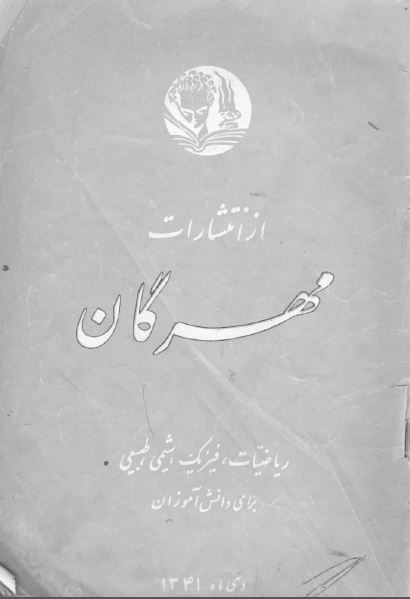 از انتشارات
مهرگان
ریاضیّات، فیزیک، شیمی، طبیعی
برای دانش‌آموزان
دی ماه ۱۳۴۱